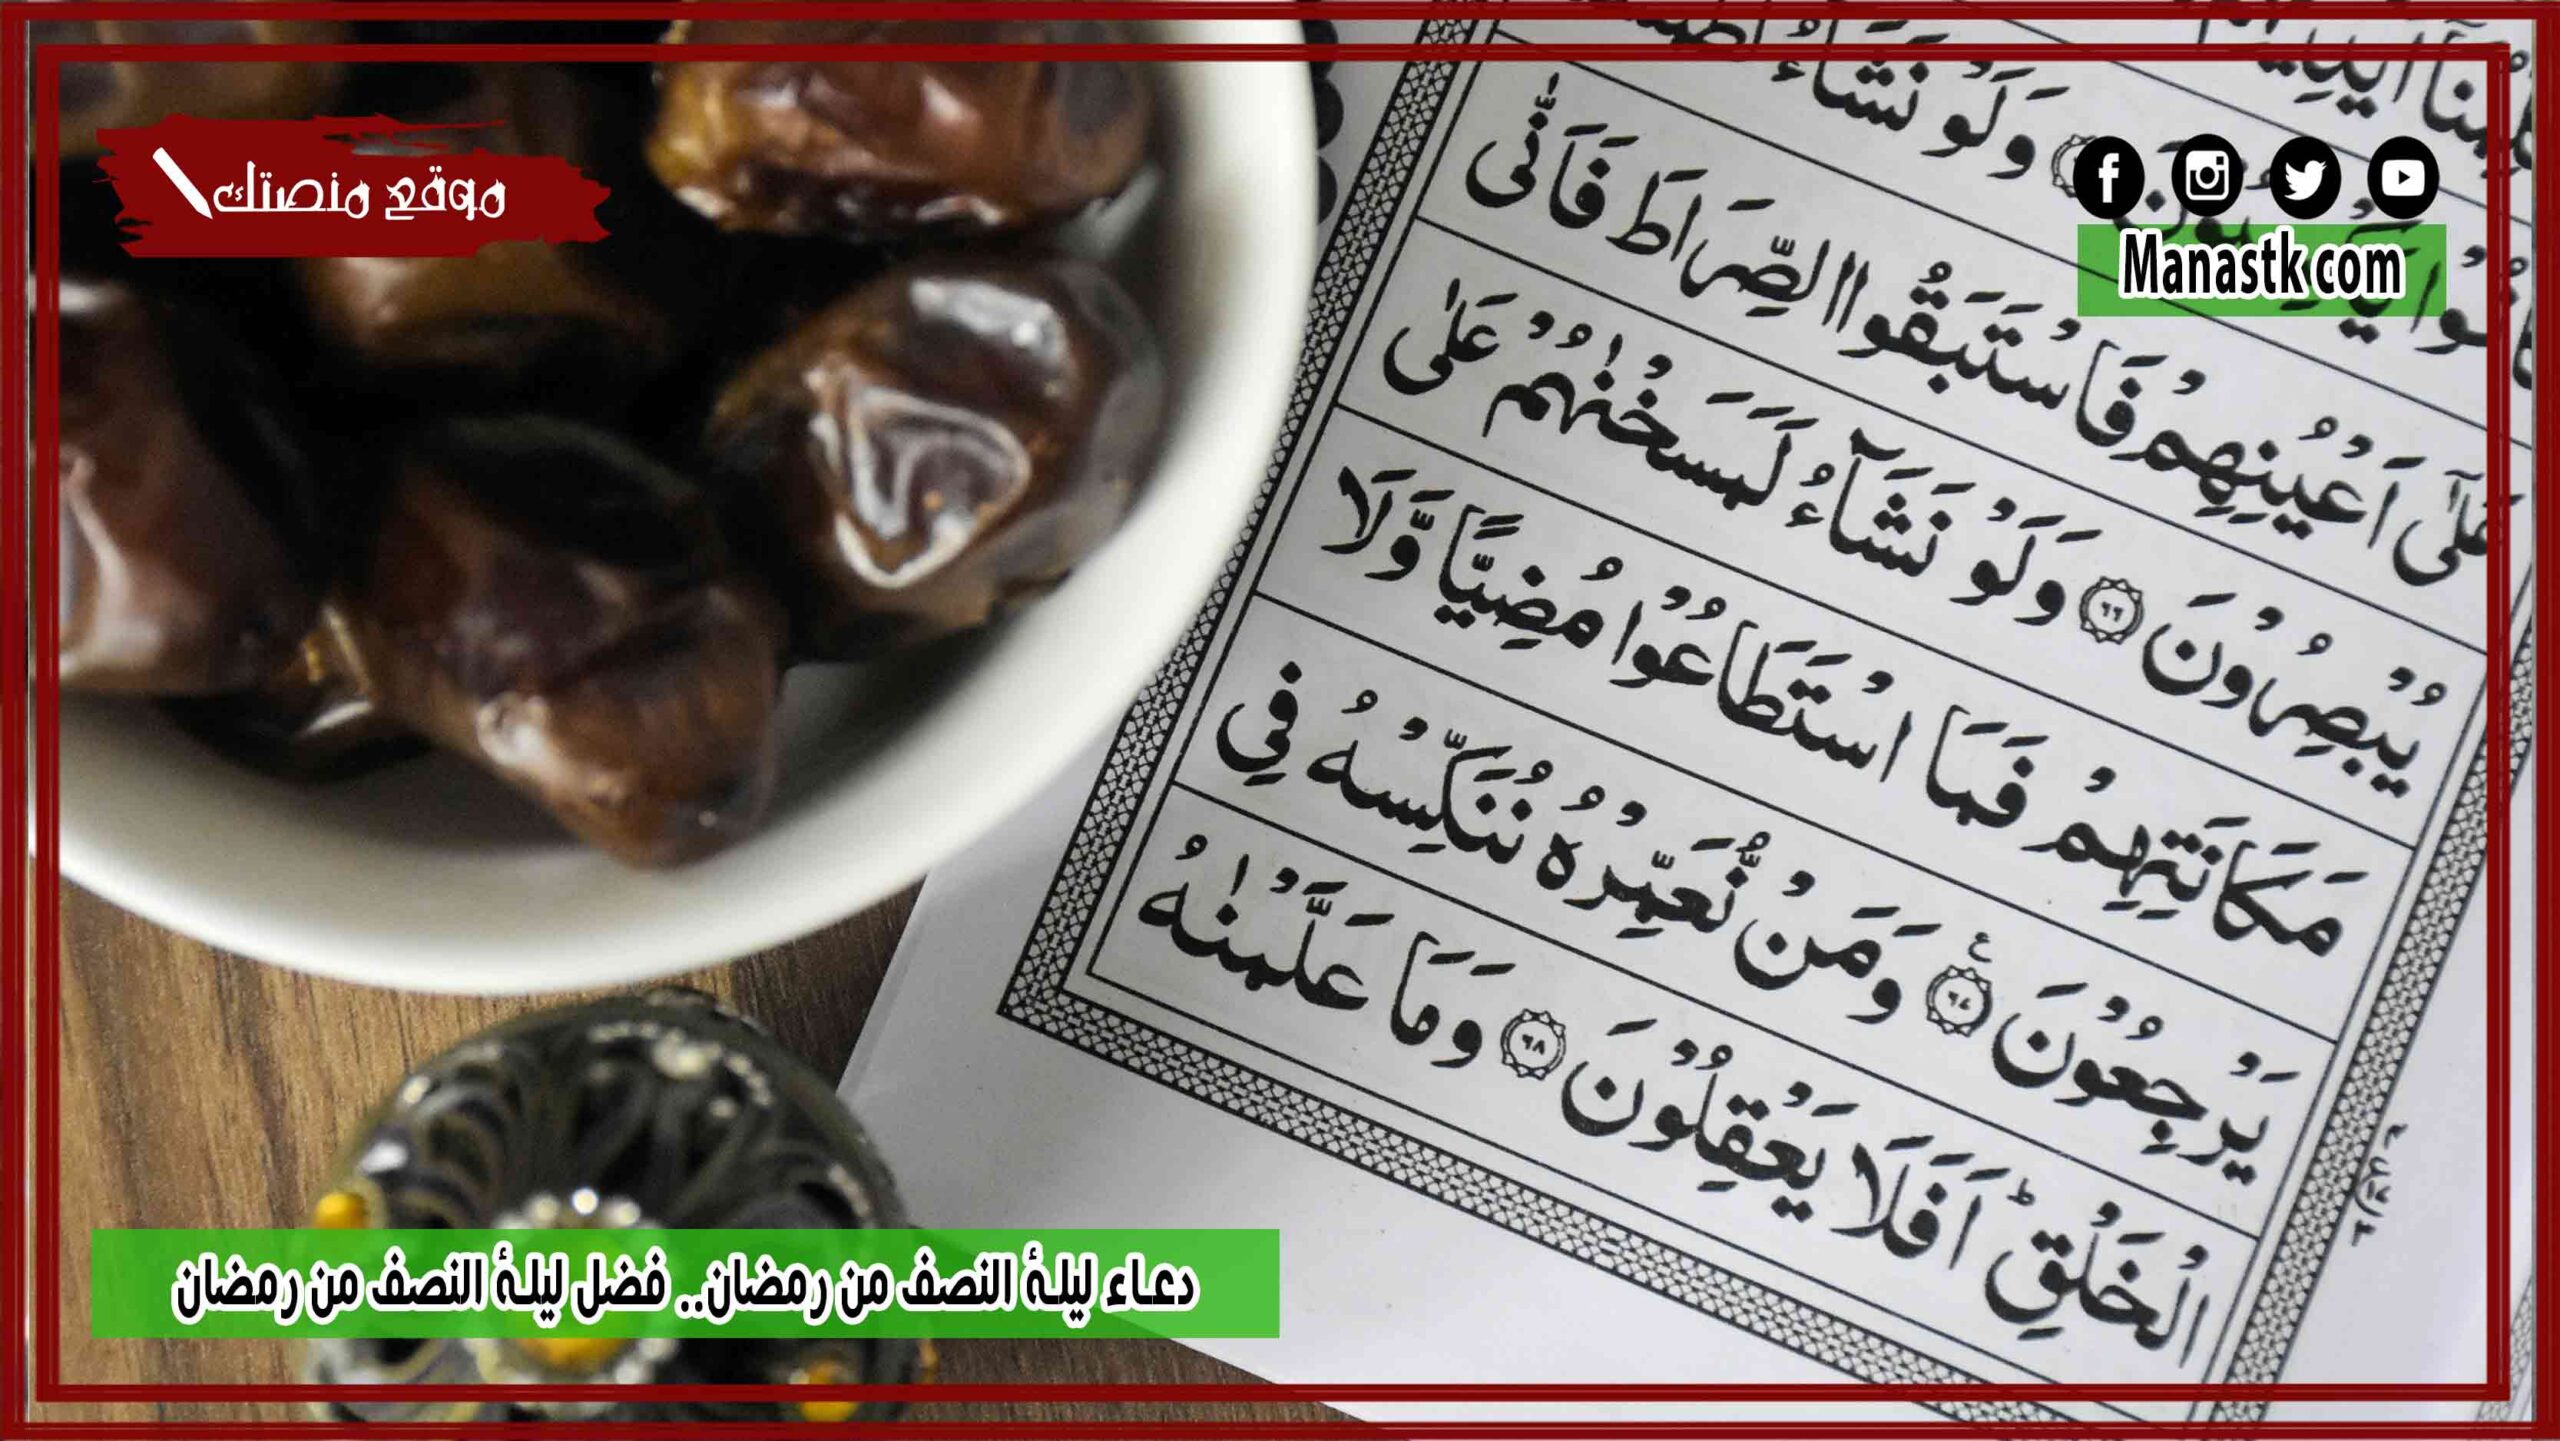 موقع منصتك
Manastk com
وَلَوْ نَشَآءُ
عَلٰٓى اَعْيُنِهِمْ فَاسْتَبَقُوا الصِّرَاطَ فَاَنّٰى
يُبْصِرُوْنَ ۶۶ وَلَوْ نَشَآءُ لَمَسَخْنٰهُمْ عَلٰى
مَكَانَتِهِمْ فَمَا اسْتَطَاعُوْا مُضِيًّا وَّلَا
يَرْجِعُوْنَ ۶۷ وَمَنْ نُّعَمِّرْهُ نُنَكِّسْهُ فِى
الْخَلْقِ ؕ اَفَلَا يَعْقِلُوْنَ ۶۸ وَمَا عَلَّمْنٰهُ
دعاء ليلة النصف من رمضان.. فضل ليلة النصف من رمضان